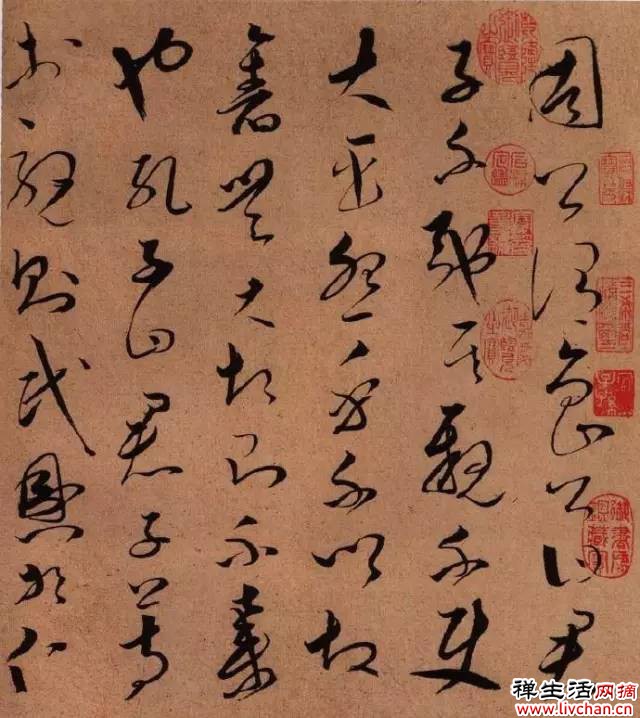 周公謂魯公曰君
子不施其親不使
大臣怨乎不以故
舊無大故則不棄
也孔子曰君子篤
於親則民興於仁
禅生活网摘
www.livchan.cn